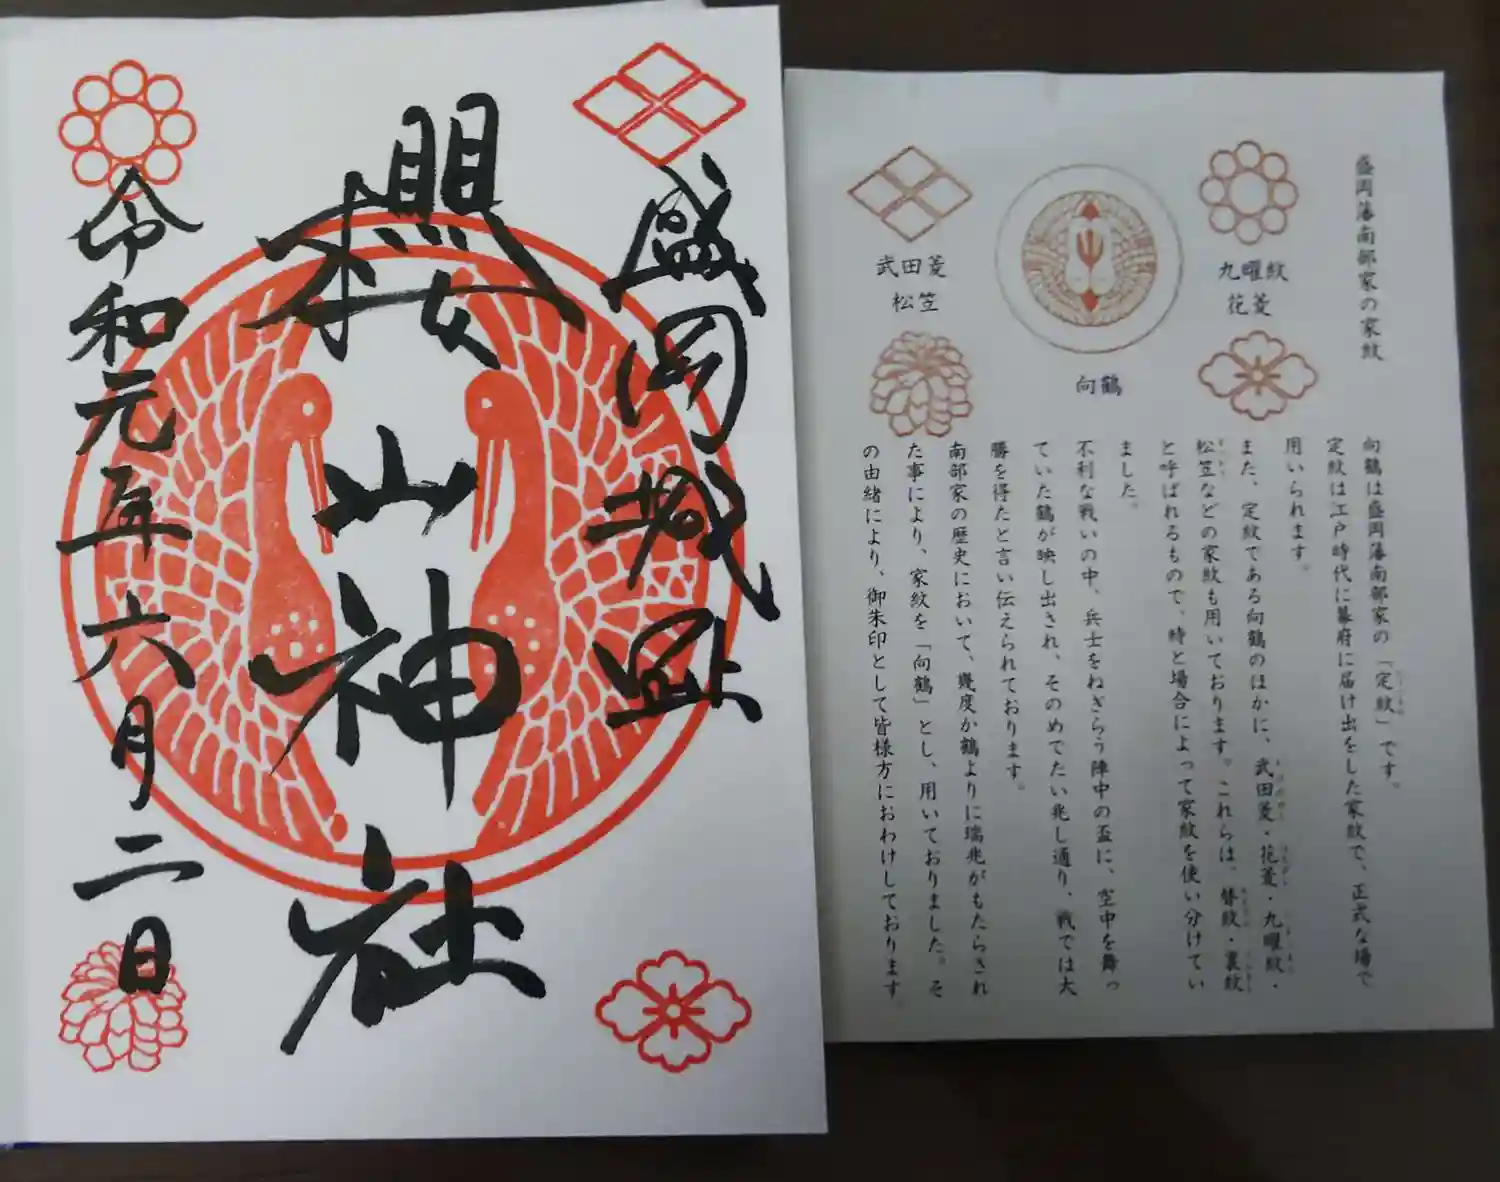 盛岡城跡
櫻山神社
令和元年六月二日
盛岡藩南部家の家紋
九曜紋
花菱
向鶴
武田菱
松笠
向鶴は盛岡藩南部家の「定紋」です。
定紋は江戸時代に幕府に届け出をした家紋で、正式な場で
用いられます。
また、定紋である向鶴のほかに、武田菱・花菱・九曜紋・
松笠などの家紋も用いております。これらは、替紋・裏紋
と呼ばれるもので、時と場合によって家紋を使い分けてい
ました。
不利な戦いの中、兵士をねぎらう陣中の盃に、空中を舞っ
ていた鶴が映し出され、そのめでたい兆し通り、戦では大
勝を得たと言い伝えられております。
南部家の歴史において、幾度か鶴よりに瑞兆がもたらされ
た事により、家紋を「向鶴」とし、用いておりました。そ
の由緒により、御朱印として皆様方におわけしております。